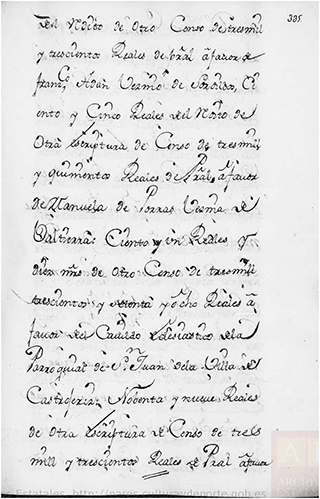 335
del Rédito de Otro Censo de tresmil
y trescientos Reales de Pral afavor de
Franco Adán Vezino de
ento y Cinco Reales del Rédito de
Otra escriptura de Censo de tres mil
y quinientos Reales de Pral a favor
de Manuela de Porras Vezina de
Valtierra: Ciento y un Reales y
diez mrs de Otro Censo de tresmill
trescientos y setenta y ocho Reales a
favor del Cavildo eclesiastico dela
Parroquial de Sn Juan dela Villa de
Castrojeriz; Nobenta y nueve Reales
de Otra escriptura de Censo de tres
mill y trescientos Reales de Pral afavor